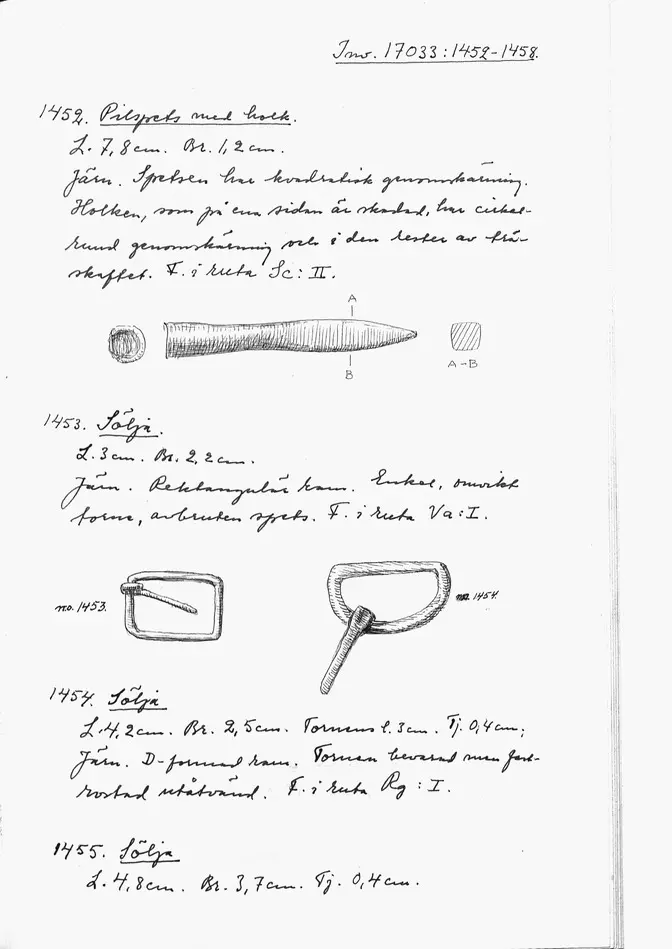 Inv. 17033:1452-1458.
1452. Pilspets med holk.
L. 7,8 cm. Br. 1,2 cm.
Järn. Spetsen har kvadratisk genomskärning.
Holken, som på ena sidan är skadad, har cirkel-
rund genomskärning och i den rester av trä-
skaftet. F. i ruta Sc: II.
A
B
A-B
1453. Sölja.
L. 3 cm. Br. 2,2 cm.
Järn. Rektangulär ram. Enkel, omvikt
torne, avbruten spets. F. i ruta Va: I.
no. 1453.
no. 1454.
1454. Sölja
L. 4,2 cm. Br. 2,5 cm. Tornens l. 3 cm. Tj. 0,4 cm;
Järn. D-formad ram. Tornen bevarad men fast-
rostad utåtvänd. F. i ruta Rg: I.
1455. Sölja
L. 4,8 cm. Br. 3,7 cm. Tj. 0,4 cm.